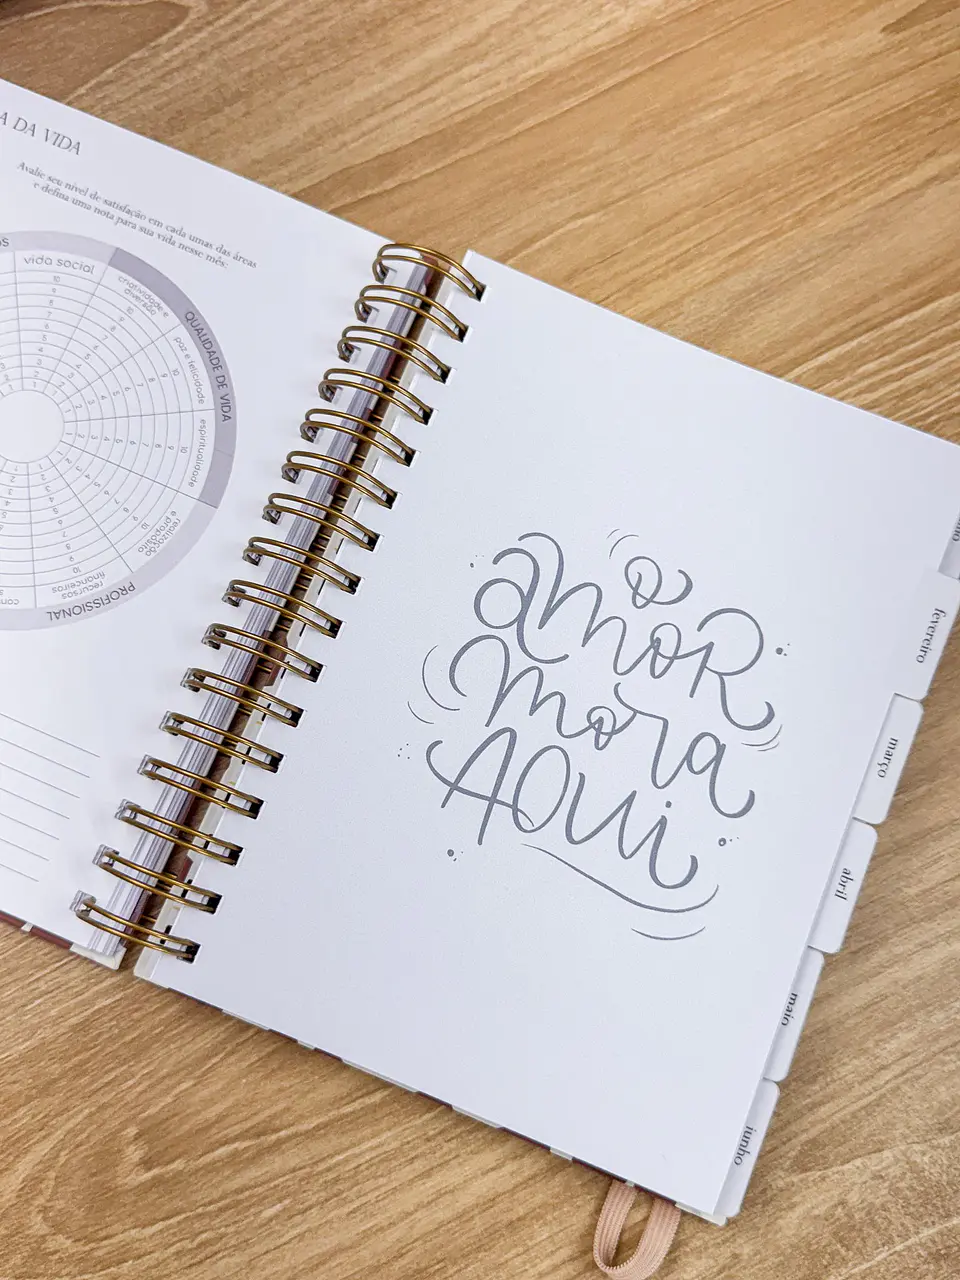 A DA VIDA
Avalie seu nível de satisfação em cada umas das áreas
e defina uma nota para sua vida nesse mês:
OS
vida social
criatividade e
diversão
QUALIDADE DE VIDA
paz e felicidade
espiritualidade
realização
e propósito
PROFISSIONAL
recursos
financeiros
10 9 8 7 6 5 4 3 2 1
o
amor
mora
aqui
fevereiro
março
abril
maio
junho